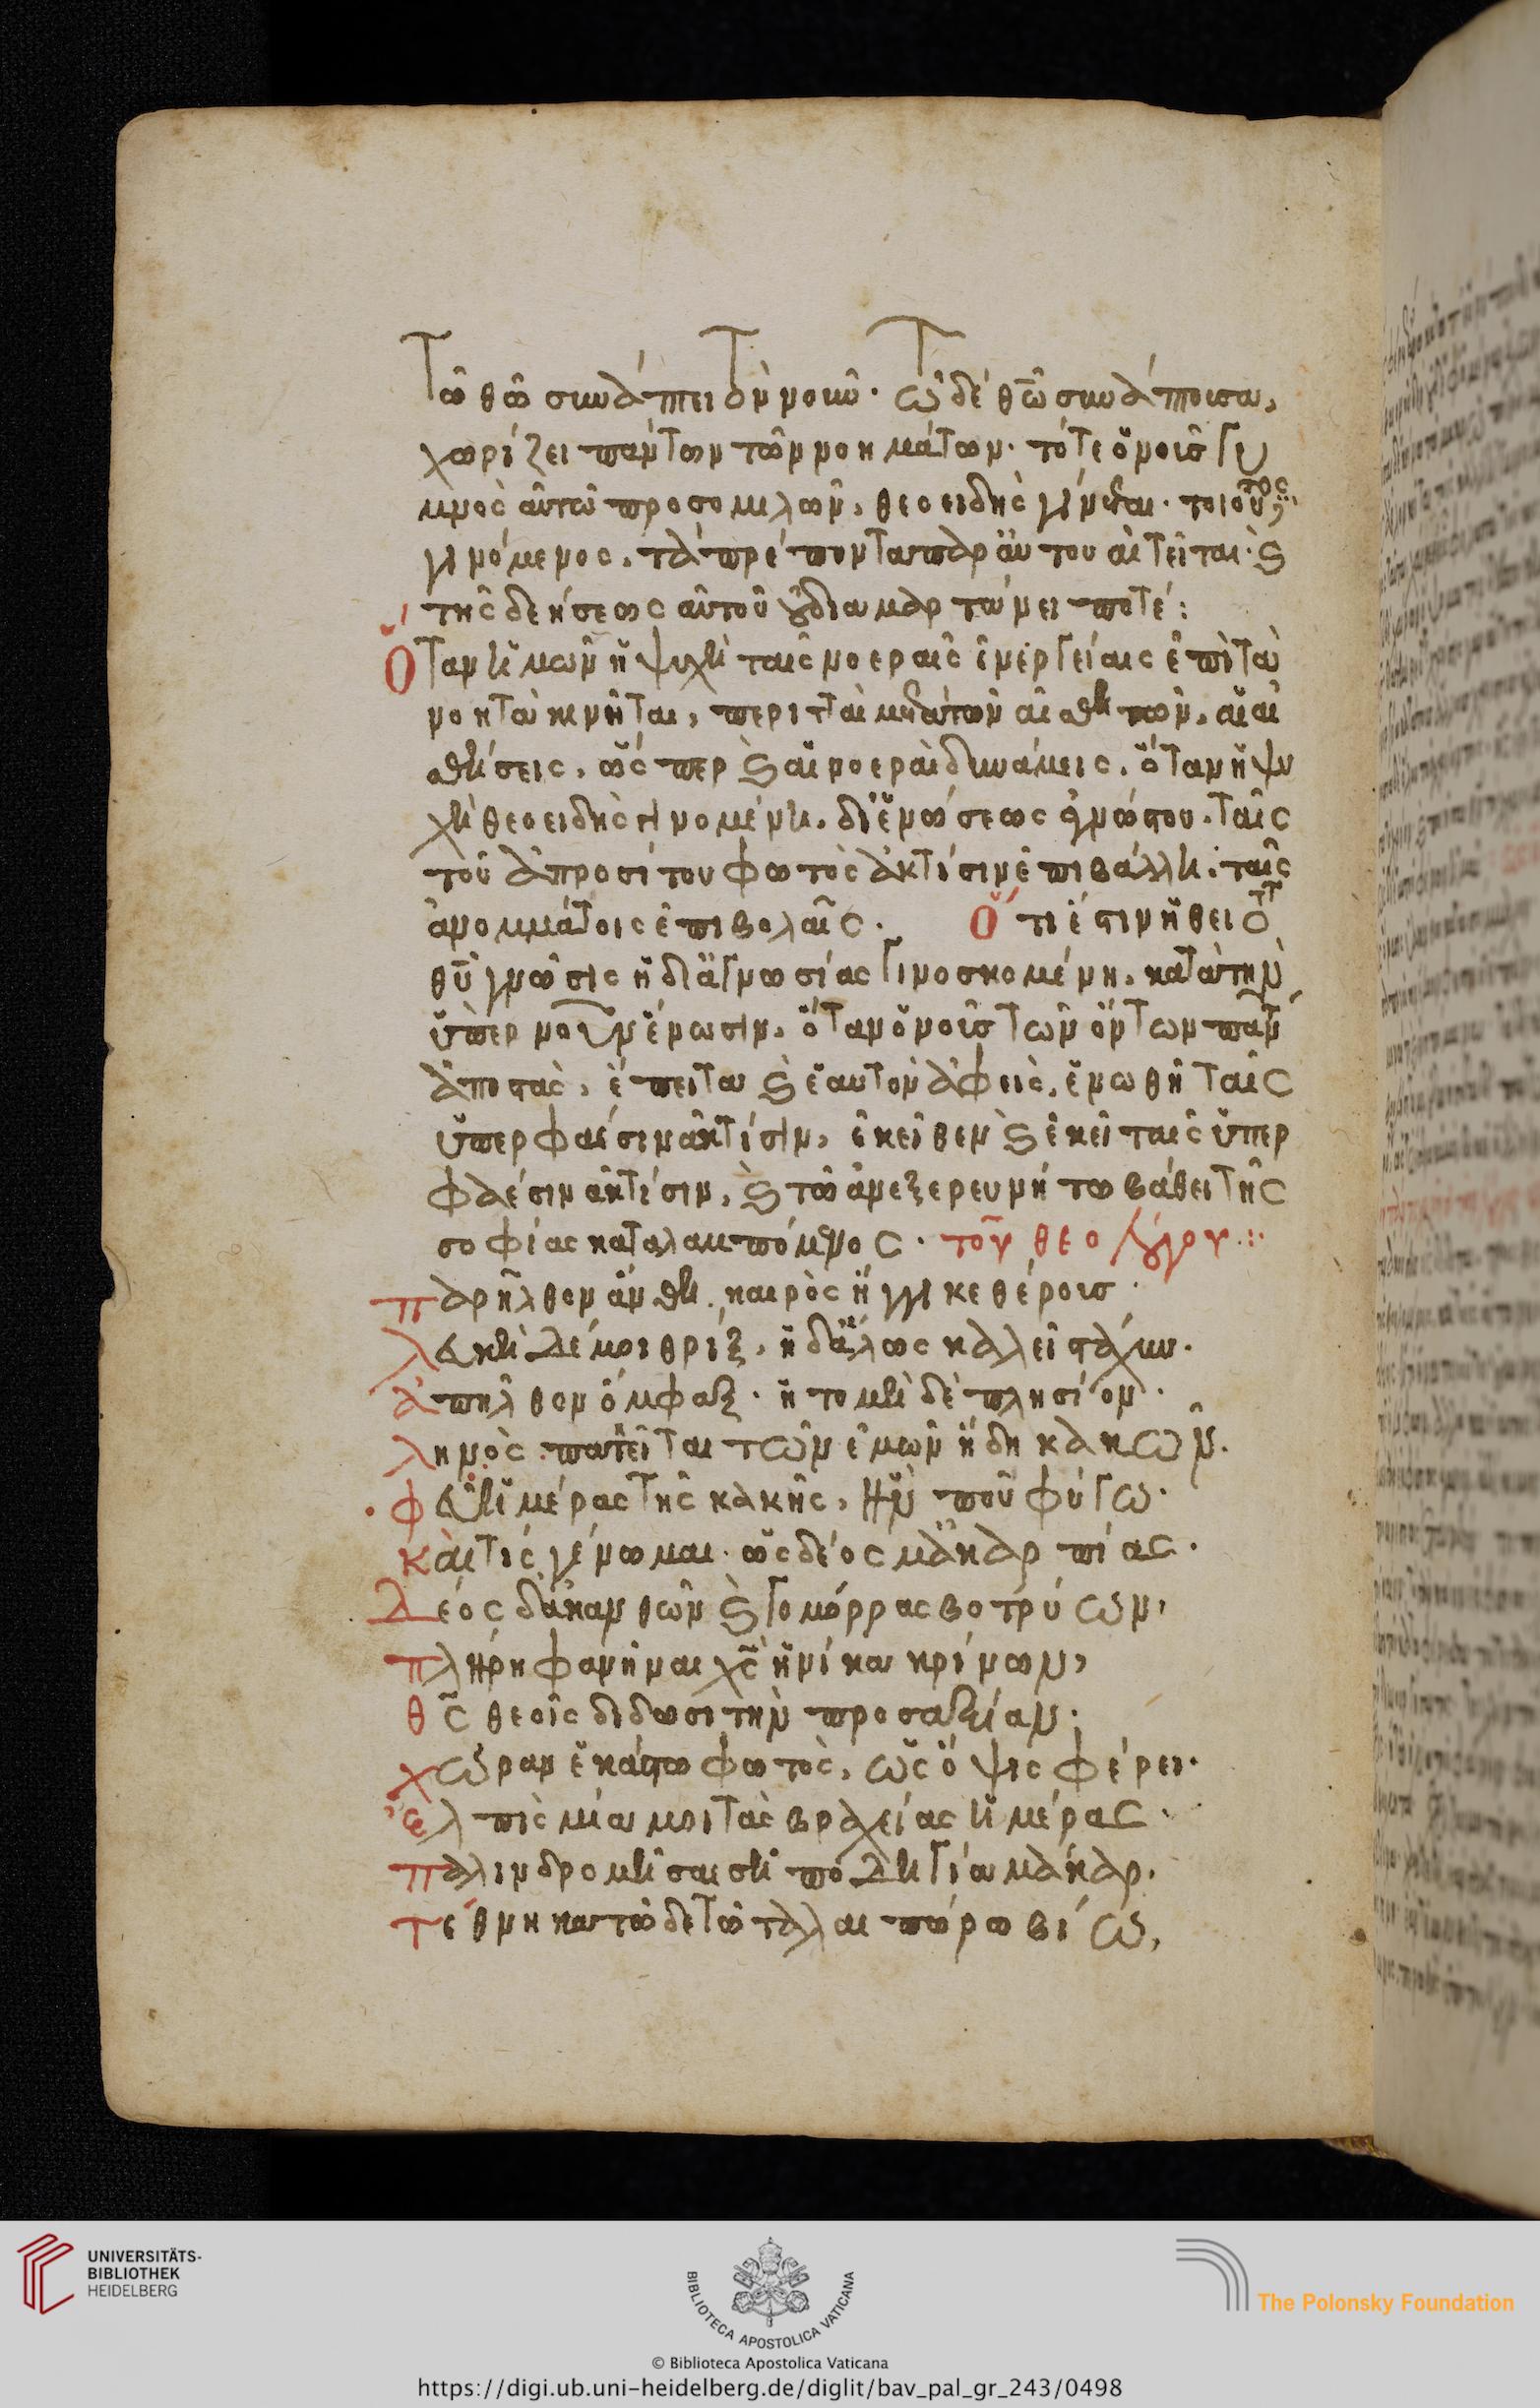 Τῶ θῶ συνάπτει τὸν νοῦν. ὧ δὲ θῶ συνάπτουσα,
χωρίζει πάντων τῶν νοημάτων. τότε ὁ νοῦς γυ
μνὸς αὐτῶ προσομιλῶν, θεοειδὴς γίνεται. τοιοῦτος
γινόμενος, τὰ πρέποντα παρ αὐτοῦ αἰτεῖται. καὶ
τῆς δεήσεως αὐτοῦ οὐ διαμαρτάνει ποτέ:
Ὅταν ἡμῶν ἡ ψυχὴ ταῖς νοεραῖς ἐνεργείαις ἐπὶ τὰ
νοητὰ κινῆται, περιτταὶ μετὰ τῶν αἰσθητῶν, αἱ αἰ
σθήσεις. ὥσπερ καὶ αἱ νοεραὶ δυνάμεις. ὅταν ἡ ψυ
χὴ θεοειδὴς γινομένη. δι ἑνώσεως ἀγνώστου. ταῖς
τοῦ ἀπροσίτου φωτὸς ἀκτίσιν ἐπιβάλλη. ταῖς
ἀνομμάτοις ἐπιβολαῖς. Ὅτι ἔστιν ἡ θειοτ
θῦ γνῶσις ἡ δι ἀγνωσίας γινοσκομένη. κατὰ τὴν
ὑπὲρ νοῦν ἕνωσιν. ὅταν ὁ νοῦς τῶν ὄντων παντ
ἀποστὰς, ἔπειτα καὶ ἑαυτὸν ἀφεις, ἑνωθῆ ταῖς
ὑπερφαέσιν ἀκτίσιν, ἐκεῖθεν καὶ ἐκεῖ ταῖς ὑπερ
φαέσιν ἀκτίσιν, καὶ τῶ ἀνεξερευνήτω βάθει τῆς
σοφίας καταλαμπόμενος. τοῦ θεολόγου:
παρῆλθον ἄνθη. καιρὸς ἤγγικε θέρους.
λευκὴ δέ μοι θρίξ, ἡ δ ἅλως καλεῖ στάχυν.
ἀπῆλθον ὄμφαξ. ἡ τομὴ δὲ πλησίον.
ληνὸς πατεῖται τῶν ἐμῶν ἤδη κακῶν.
φεῦ ἡμέρας τῆς κακῆς, ἣν ποῦ φύγω.
καὶ τίς γένωμαι. ὡς δέος μ ἀκαρπίας.
δέος δ ἀκανθῶν καὶ γομόρρας βοτρύων,
πλήρη φανῆναι χς ἡνίκα κρίνων,
θς θεοῖς διδωσι τὴν προσαξίαν.
χώραν ἑκάστω φωτὸς, ὡς ὄψις φέρει.
ἐλπὶς μία μοι τὰς βραχείας ἡμέρας.
παλινδρομῆσαι σῆ ποδηγία μάκαρ.
τέθνηκα τῶδε τῶ ταλαιπώρω βίω,
UNIVERSITÄTS-
BIBLIOTHEK
HEIDELBERG
BIBLIOTECA APOSTOLICA VATICANA
The Polonsky Foundation
© Biblioteca Apostolica Vaticana
https://digi.ub.uni-heidelberg.de/diglit/bav_pal_gr_243/0498